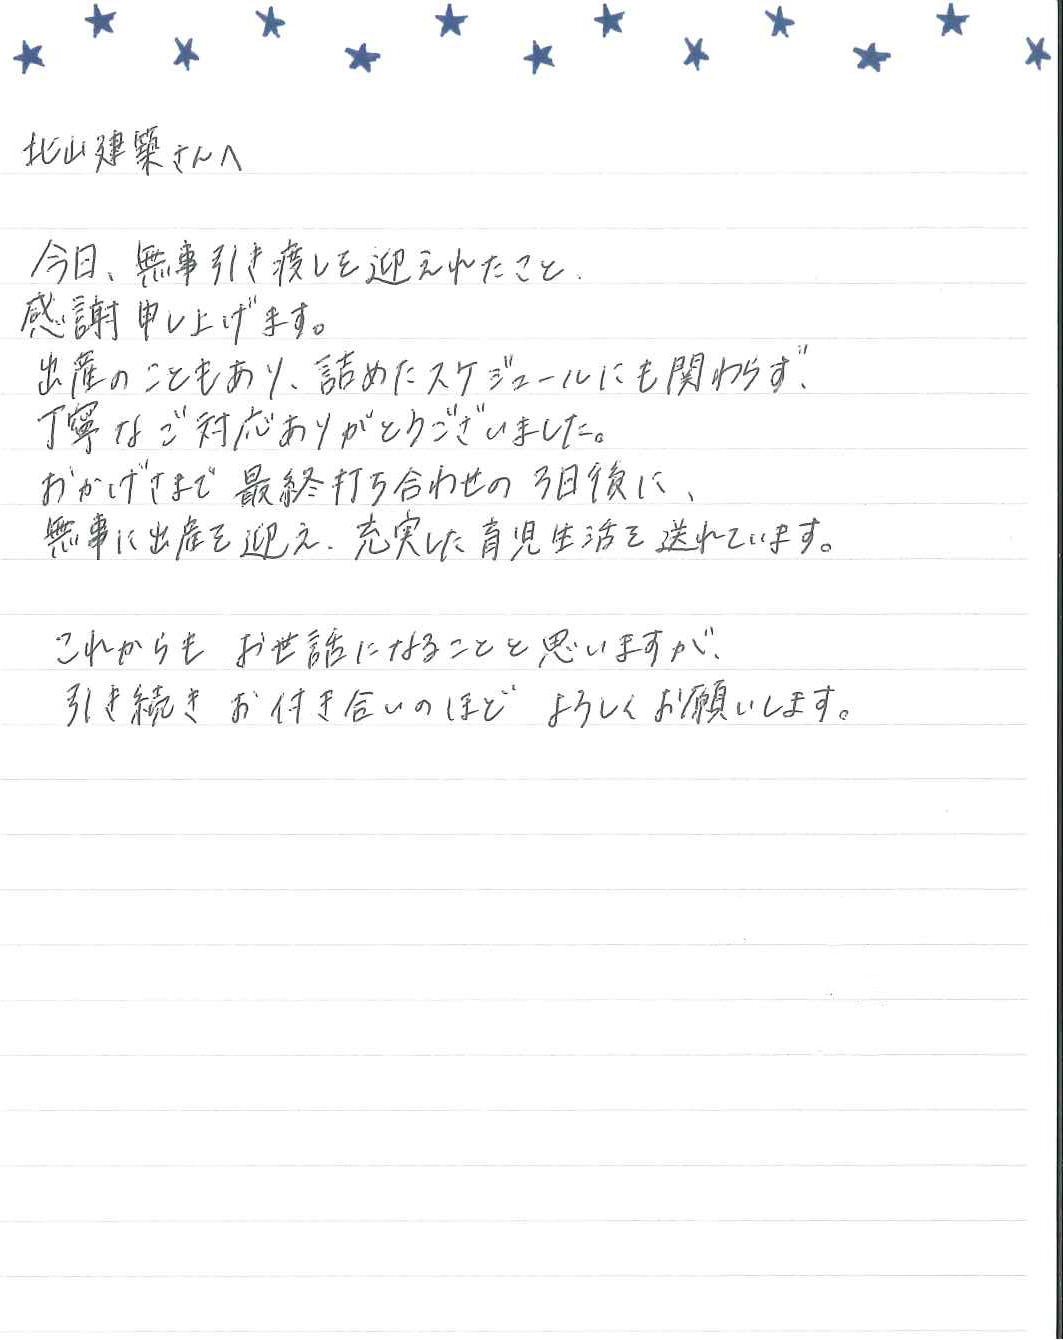 北山建築さんへ
今日、無事引き渡しを迎えれたこと、
感謝申し上げます。
出産のこともあり、詰めたスケジュールにも関わらず、
丁寧なご対応ありがとうございました。
おかげさまで 最終打ち合わせの 3日後に、
無事に出産を迎え、充実した育児生活を送れています。
これからも お世話になることと思いますが、
引き続き お付き合いのほど よろしくお願いします。